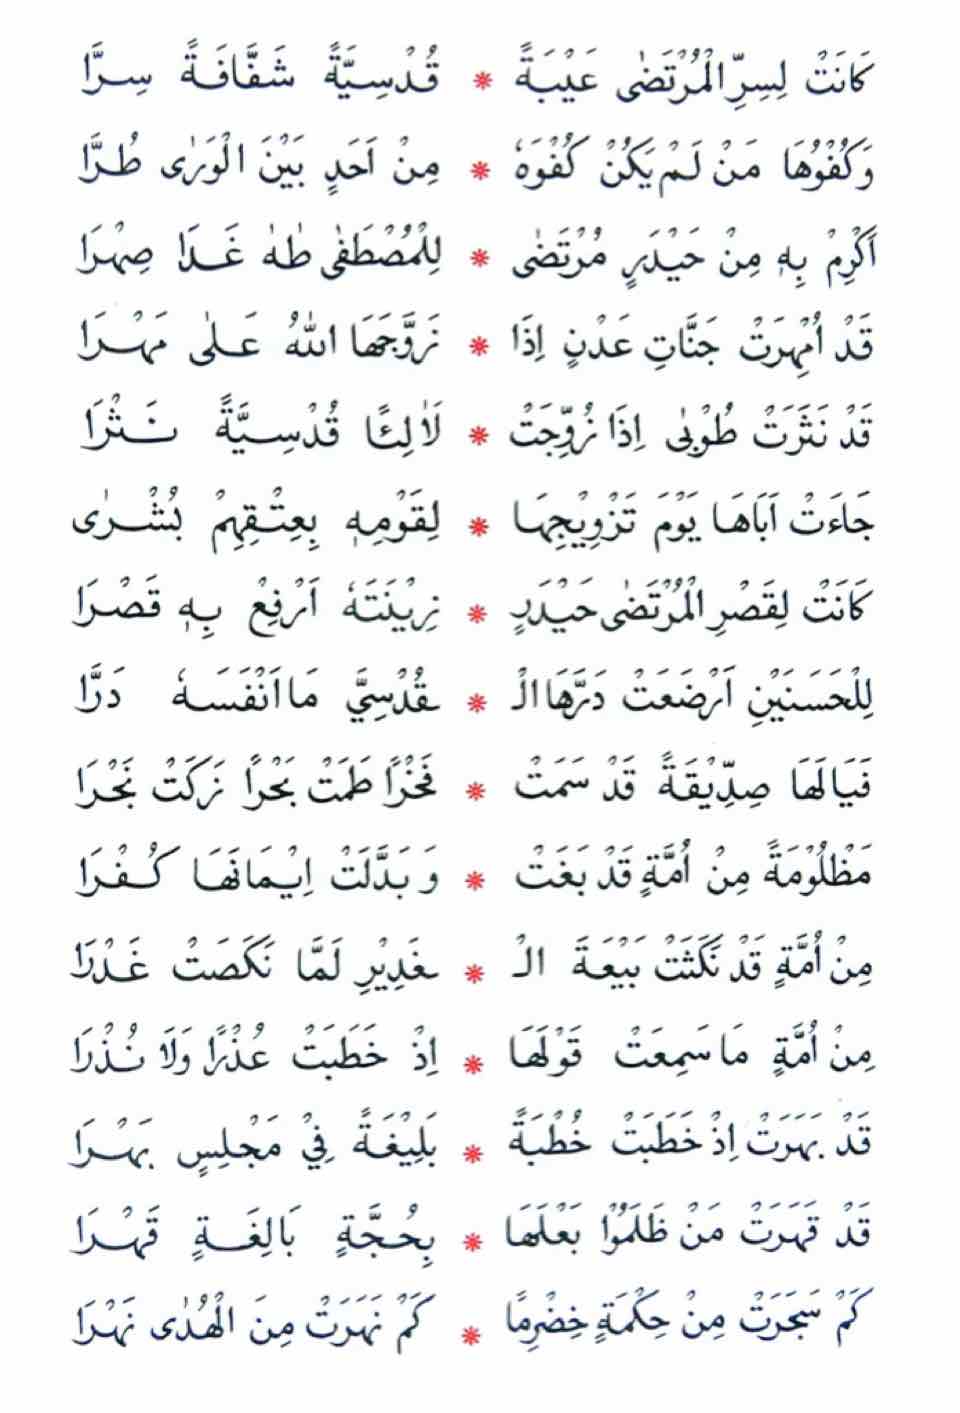 كَانَتْ لِسِرِّ الْمُرْتَضٰى عَيْبَةً * قُدْسِيَّةً شَفَّافَةً سِرًّا
وَكُفْوُهَا مَنْ لَمْ يَكُنْ كُفْوَهٗ * مِنْ اَحَدٍ بَيْنَ الْوَرٰى طُرًّا
اَكْرِمْ بِهٖ مِنْ حَيْدَرٍ مُرْتَضٰى * لِلْمُصْطَفٰى طٰهٰ غَدَا صِهْرَا
قَدْ اُمْهِرَتْ جَنَّاتِ عَدْنٍ اِذَا * زَوَّجَهَا اللهُ عَلٰى مَهْرَا
قَدْ نَثَرَتْ طُوْبٰى اِذَا زُوِّجَتْ * لَاٰلِئًا قُدْسِيَّةً نَثْرَا
جَاءَتْ اَبَاهَا يَوْمَ تَزْوِيْجِهَا * لِقَوْمِهٖ بِعِتْقِهِمْ بُشْرٰى
كَانَتْ لِقَصْرِ الْمُرْتَضٰى حَيْدَرٍ * زِيْنَتَهٗ اَرْفِعْ بِهٖ قَصْرَا
لِلْحَسَنَيْنِ اَرْضَعَتْ دَرَّهَا الْـ * ـقُدْسِيَّ مَا اَنْفَسَهٗ دَرَّا
فَيَا لَهَا صِدِّيْقَةً قَدْ سَمَتْ * فَخْرًا طَمَتْ بَحْرًا زَكَتْ نَجْرَا
مَظْلُوْمَةً مِنْ اُمَّةٍ قَدْ بَغَتْ * وَبَدَّلَتْ اِيْمَانَهَا كُفْرَا
مِنْ اُمَّةٍ قَدْ نَكَثَتْ بَيْعَةَ الْـ * ـغَدِيْرِ لَمَّا نَكَصَتْ غَدْرَا
مِنْ اُمَّةٍ مَا سَمِعَتْ قَوْلَهَا * اِذْ خَطَبَتْ عُذْرًا وَلَا نُذْرَا
قَدْ بَهَرَتْ اِذْ خَطَبَتْ خُطْبَةً * بَلِيْغَةً فِيْ مَجْلِسٍ بَهْرَا
قَدْ قَهَرَتْ مَنْ ظَلَمُوْا بَعْلَهَا * بِحُجَّةٍ بَالِغَةٍ قَهْرَا
كَمْ سَجَرَتْ مِنْ حِكْمَةٍ خِضْرِمًا * كَمْ نَهَرَتْ مِنَ الْهُدٰى نَهْرَا